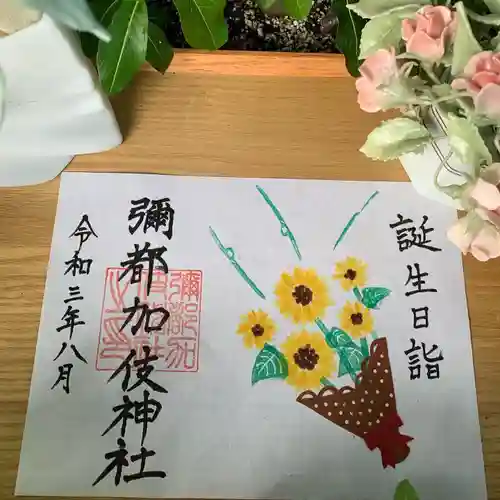 誕生日詣
彌都加伎神社
令和三年八月